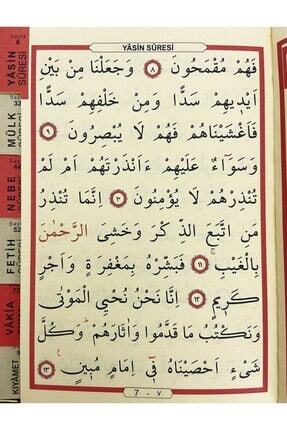 YÂSİN SÛRESİ
فَهُمْ مُقْمَحُونَ ﴿٨﴾ وَجَعَلْنَا مِنْ بَيْنِ
اَيْدِيهِمْ سَدًّا وَمِنْ خَلْفِهِمْ سَدًّا
فَاَغْشَيْنَاهُمْ فَهُمْ لَا يُبْصِرُونَ ﴿٩﴾
وَسَوَٓاءٌ عَلَيْهِمْ ءَاَنْذَرْتَهُمْ اَمْ لَمْ
تُنْذِرْهُمْ لَا يُؤْمِنُونَ ﴿١٠﴾ اِنَّمَا تُنْذِرُ
مَنِ اتَّبَعَ الذِّكْرَ وَخَشِىَ الرَّحْمٰنَ
بِالْغَيْبِۚ فَبَشِّرْهُ بِمَغْفِرَةٍ وَاَجْرٍ
كَرِيمٍ ﴿١١﴾ اِنَّا نَحْنُ نُحْيِى الْمَوْتٰى
وَنَكْتُبُ مَا قَدَّمُوا وَاٰثَارَهُمْۜ وَكُلَّ
شَىْءٍ اَحْصَيْنَاهُ فٖٓى اِمَامٍ مُبٖينٍ ﴿١٢﴾
7 - ٧
Sayfa
6
YÂSİN
SÛRESİ
MÜLK
NEBE
FETİH
VÂKIA
KIYÂMET